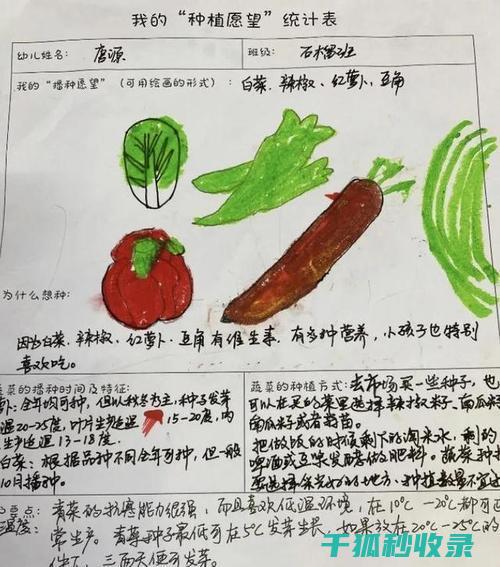 我的“种植愿望”统计表
幼儿姓名： 唐源 班级： 石榴班
我的“播种愿望”（可用绘画的形式）： 白菜、辣椒、红萝卜、豆角
为什么想种：
因为白菜、辣椒、红萝卜、豆角有维生素，有多种营养，小孩子也特别
喜欢吃。
蔬菜的播种时间及特征：
卜：全年均可种，但以秋冬为主，种子发芽
温20-25度，叶片生长适温 15-20度，肉
生长适温13-18度。
白菜：根据品种不同全年可种，但一般
10月播种。
蔬菜的种植方式：去市场买一些种子，也
可以在买的菜里选择辣椒籽、南瓜籽
南瓜籽或者番茄。
把做饭的时候剩下的淘米水，剩的
啤酒或豆浆发酵做肥料。蔬菜种植
要选择 的地方，种植数量不宜过
意点：青菜的抗寒能力很强，而且喜欢低温环境，在10℃-20℃都可正
温度：常生产。青菜种子最低可在5℃发芽生长，如果放在20℃-25℃的
三四天便可发芽。
千狐秒收录